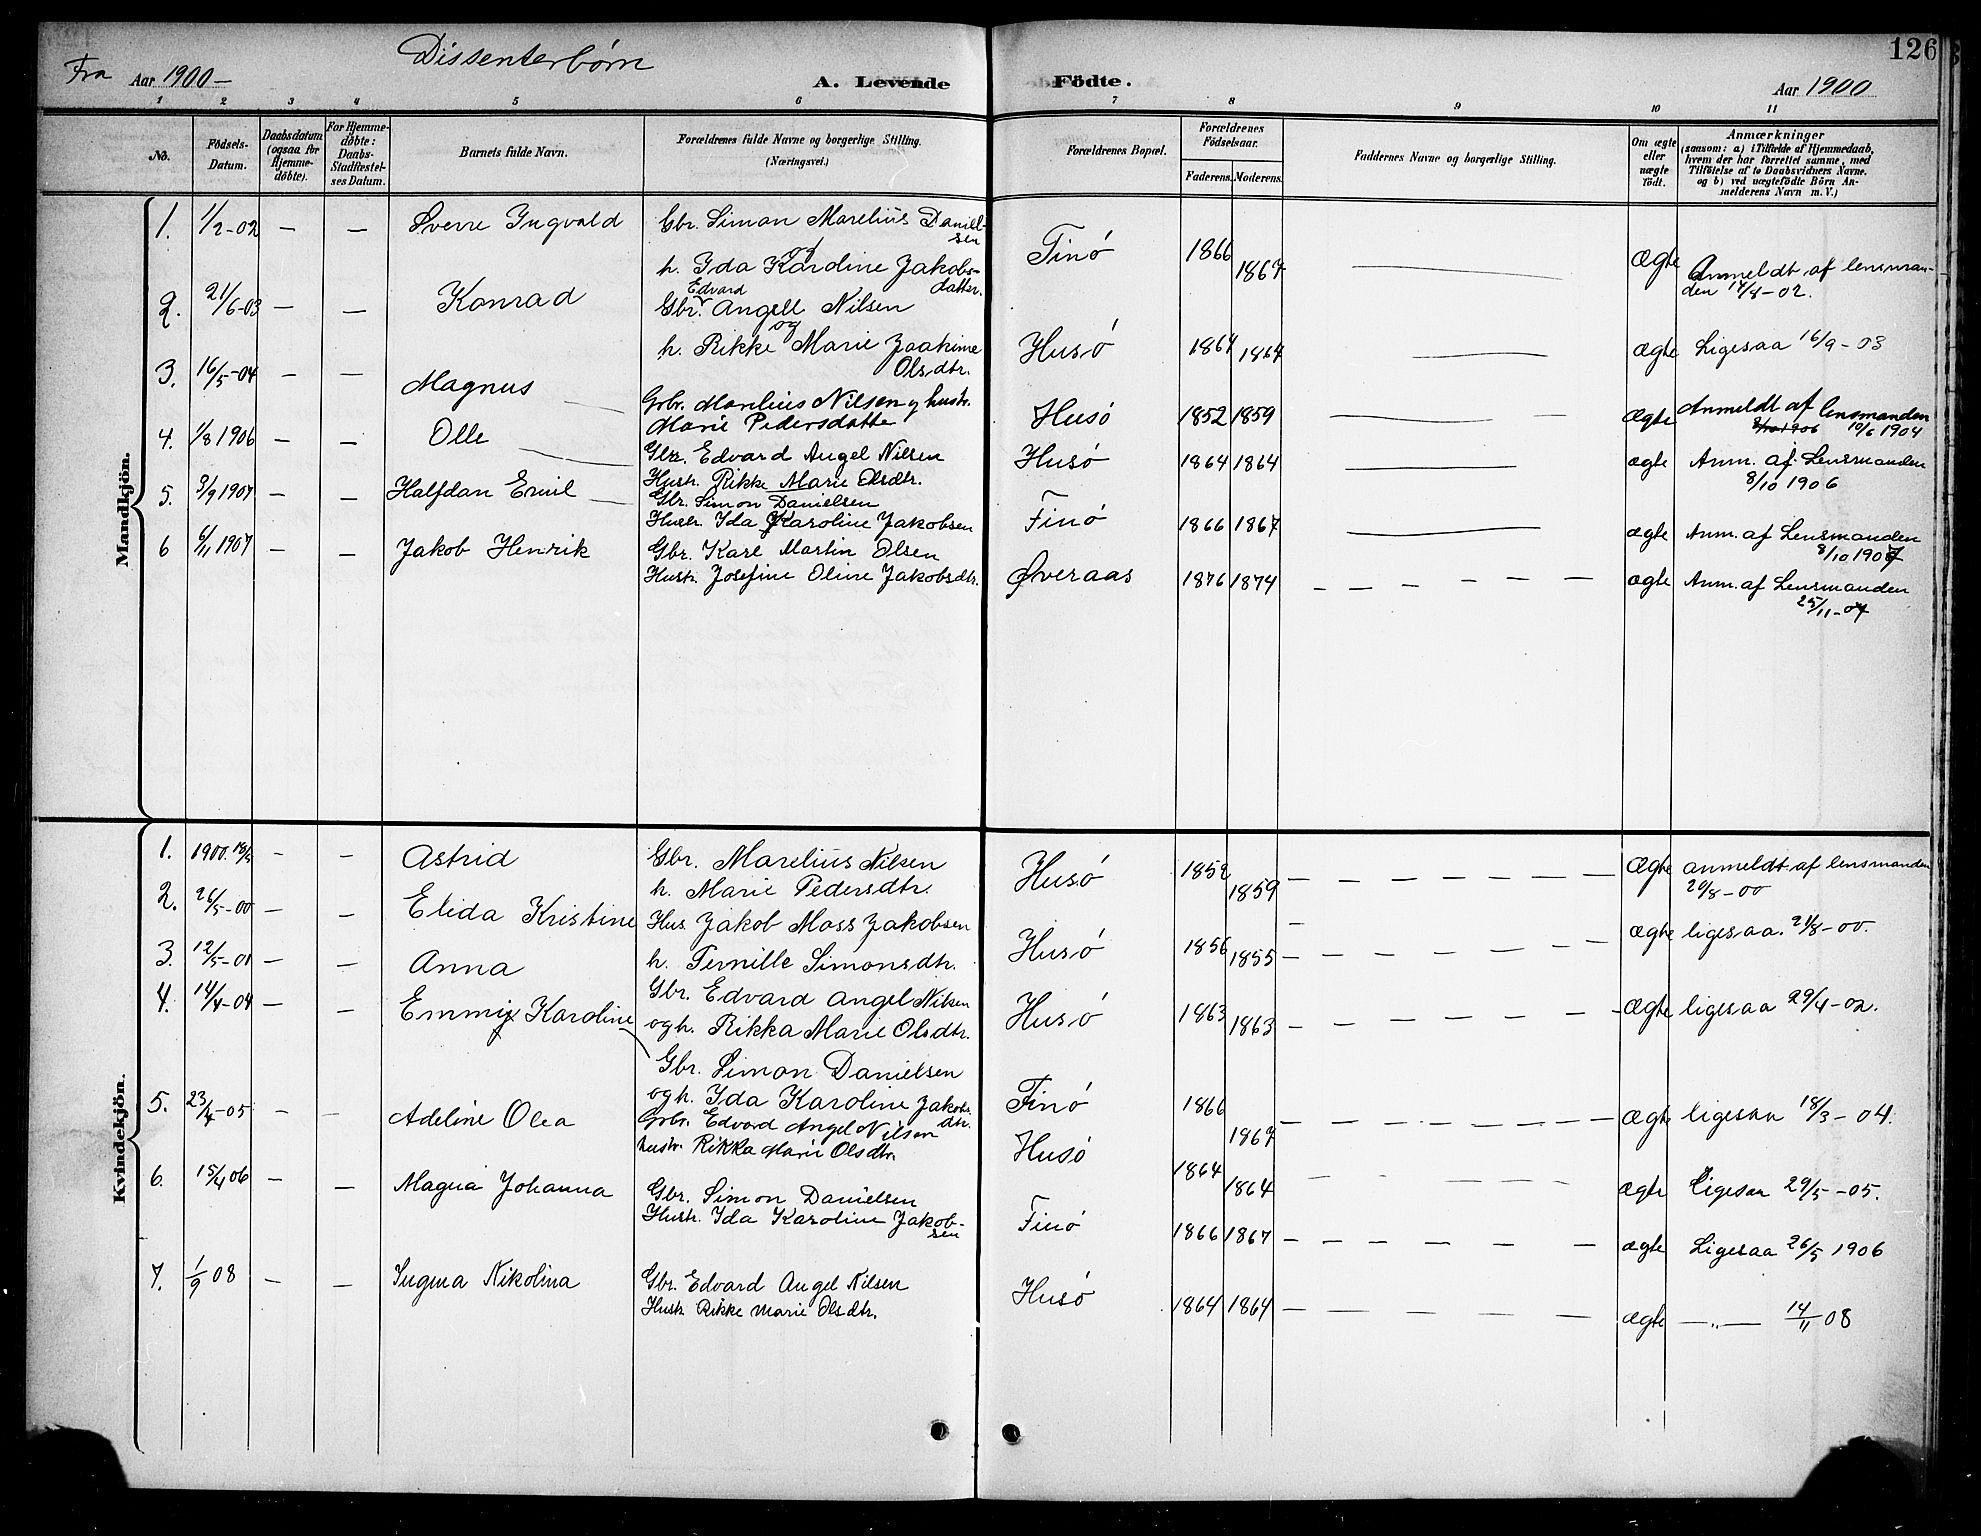 126
Fra Aar 1900 –
Dissenterbørn
A. Levende Födte.
Aar 1900
1 2 3 4 5 6 7 8 9 10 11
No.
Födsels-Datum.
Daabsdatum (ogsaa for Hjemme-döbte).
For Hjemme-döbte: Daabs-Stadfæstel-ses Datum.
Barnets fulde Navn.
Forældrenes fulde Navne og borgerlige Stilling. (Næringsvei.)
Forældrenes Bopæl.
Forældrenes Födselsaar.
Faderens. Moderens.
Faddernes Navne og borgerlige Stilling.
Om ægte eller uægte födt.
Anmærkninger (saasom: a) i Tilfælde af Hjemmedaab, hvem der har forrettet samme, med Tilföielse af to Daabsvidners Navne, og b) ved uægtefödte Börn An-melderens Navn m. V.)
Mandkjön.
1. 1/2-02 – – Sverre Ingvald Gbr. Simon Marelius Daniel-sen og h. Ida Karoline Jakobs-datter. Finö 1866 1867 — ægte Anmeldt af lensman-den 14/8-02.
2. 21/6-03 – – Konrad Gbr. Edvard Angell Nilsen og h. Rikke Marie Joakime Olsdtr. Husö 1864 1864 — ægte Ligesaa 16/9-03
3. 16/5-04 – – Magnus Grbr. Marelius Nilsen og hustr. Marie Pedersdatte Husö 1852 1859 — ægte Anmeldt af lensmanden 8/10 1906 10/6 1904
4. 1/8 1906 – – Olle Gbr. Edvard Angel Nilsen Hustr. Rikke Marie Olsdtr. Husö 1864 1864 — ægte Anm. af Lensmanden 8/10 1906
5. 3/9 1907 – – Halfdan Emil Gbr. Simon Danielsen Hustr. Ida Karoline Jakobsen Finö 1866 1867 — ægte Anm. af Lensmanden 8/10 1907
6 6/11 1907 – – Jakob Henrik Gbr. Karl Martin Olsen Hustr. Josefine Oline Jakobsdtr. Øveraas 1876 1874 – – – – – – ægte Anm. af Lensmanden 25/11-07
Kvindekjön.
1. 1900. 18/5 – – Astrid Gbr. Marelius Nilsen h. Marie Pedersdtr. Husö 1852 1859 – – – – – – ægte anmeldt af lensmanden 20/8-00
2. 26/5-00 – – Elida Kristine Hus. Jakob Moss Jakobsen h. Pernille Simonsdtr. Husö 1856 1855 – – – – – – ægte ligesaa. 21/8-00.
3. 12/5-01 – – Anna Gbr. Edvard Angel Nilsen og h. Rikka Marie Olsdtr. Husö 1863 1863 – – – – – – ægte ligesaa 29/4-02.
4. 14/4-04 – – Emmy Karoline Gbr. Simon Danielsen og h. Ida Karoline Jakobs.dtr. Finö 1866 1867 – – – – – – ægte ligesaa 18/3-04.
5. 23/4-05 – – Adeline Olea Grbr. Edvard Angel Nilsen hustr. Rikka Marie Olsdtr. Husö 1864 1864 – – – – – ægte Ligesaa 29/5-05.
6. 15/4 06 – – Magna Johanna Gbr. Simon Danielsen Hustr. Ida Karoline Jakob-sen Finö 1866 1867 – – – – – – ægte Ligesaa 26/5 1906
7. 1/9 08 – – Ingma Nikolina Gbr. Edvard Angel Nilsen Hustr. Rikke Marie Olsdtr. Husö 1864 1864 – – – – – – ægte —"— 14/11 08